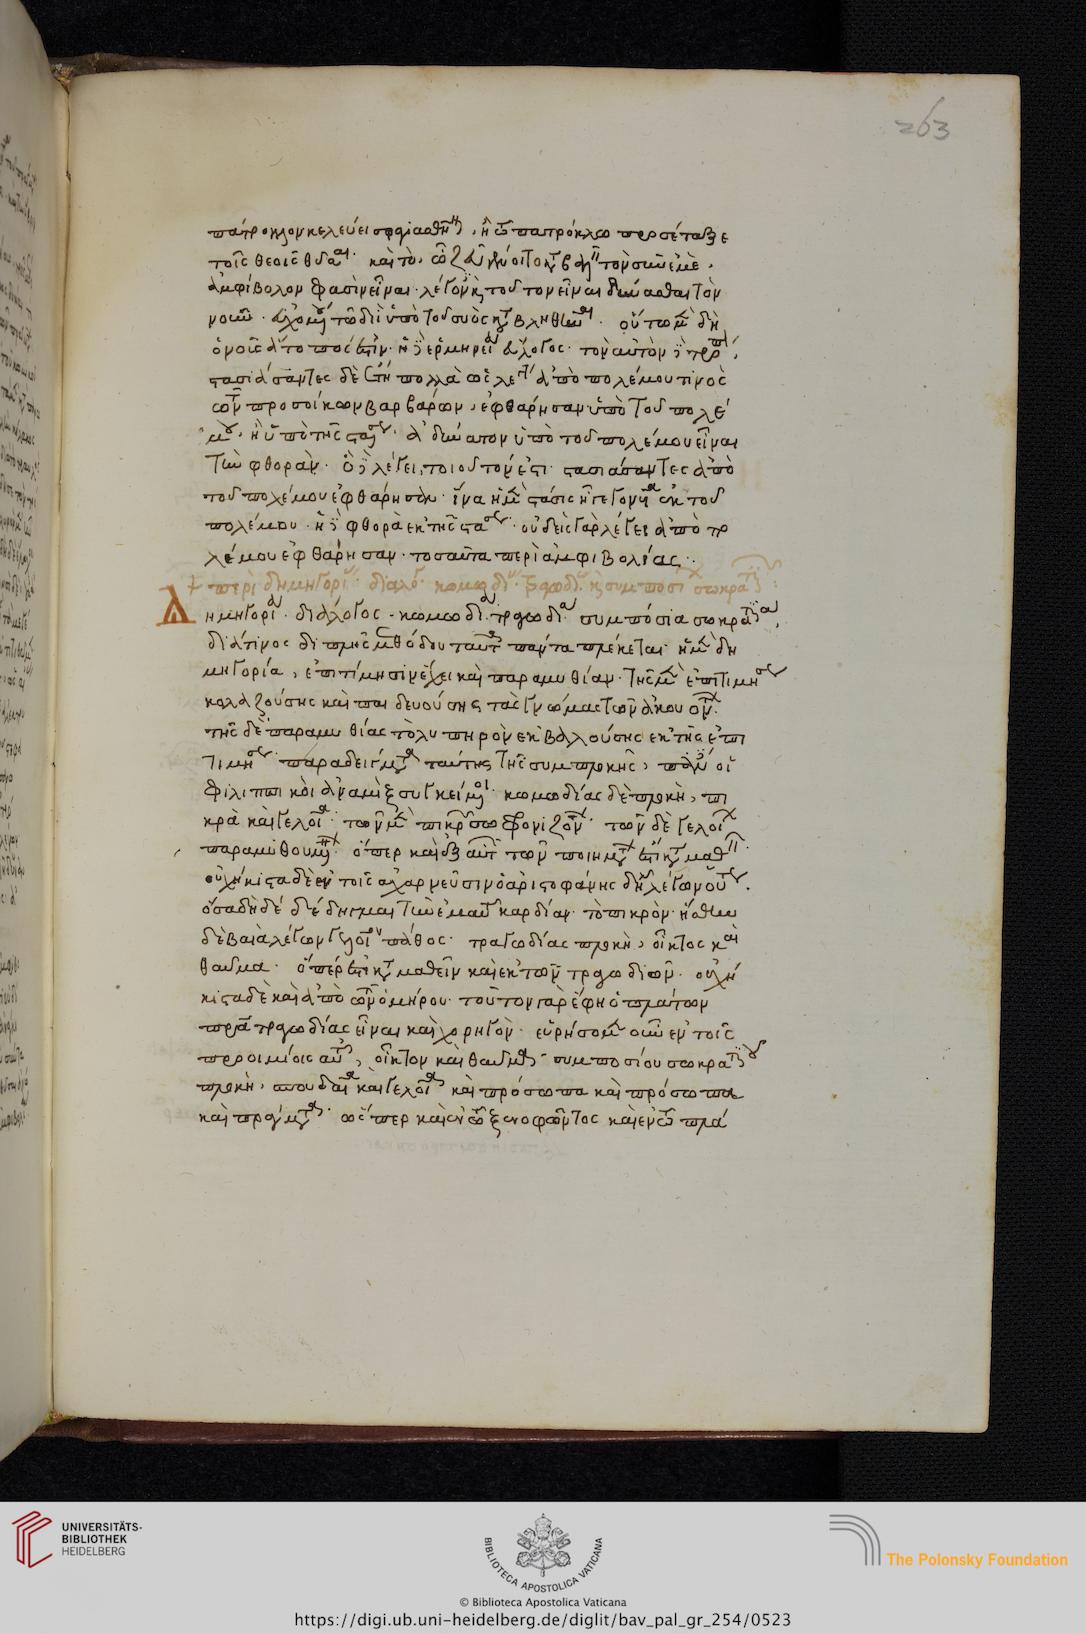 263
πάτροκλον κελεύει σφαγιασθῆναι, ἢ τῷ πατρόκλῳ προσέταξε
τοῖς θεοῖς θῦσαι. καὶ τὸ,
ἀμφίβολον φασὶν εἶναι. λέγοντος τοῦ τὸν εἶναι
ὑπὸ τοῦ συὸς οὕτω μὲν δὴ
ὁ νοῦς ἄτοπός ἐστιν. ἡ δὲ ἑρμηνεία τὸν αὐτὸν
στασιάσαντες δὲ πολλὰ ὡς λέγεται ἀπὸ πολέμου τινὸς
τῶν προσοίκων βαρβάρων, ἐφθάρησαν ὑπὸ τοῦ πολέ
μου, ἢ ὑπὸ τῆς στάσεως. ἀδύνατον ὑπὸ τοῦ πολέμου εἶναι
τὴν φθοράν. ὃ δὲ λέγει, τοιοῦτόν ἐστι. στασιάσαντες ἀπὸ
τοῦ πολέμου ἐφθάρησαν. ἵνα ἡ μὲν στάσις ᾖ γεγονυῖα ἐκ τοῦ
πολέμου. ἡ δὲ φθορὰ ἐκ τῆς στάσεως. οὐδεὶς γὰρ λέγει ἀπὸ πο
λέμου ἐφθάρησαν. τοσαῦτα περὶ ἀμφιβολίας.
περὶ δημηγορίας. διαλόγου. κωμωδίας. τραγωδίας. καὶ συμποσίων σωκρατικῶν:
Δημηγορία. διάλογος. κωμωδία. τραγωδία. συμπόσια σωκρατικὰ,
διά τινος διπλῆς μεθόδου ταῦτα πάντα πλέκεται. ἡ μὲν δη
μηγορία, ἐπιτίμησιν ἔχει καὶ παραμυθίαν. τῆς μὲν ἐπιτιμήσεως
κολαζούσης καὶ παιδευούσης τὰς γνώμας τῶν ἀκουόντων.
τῆς δὲ παραμυθίας τὸ λυπηρὸν ἐκβαλλούσης ἐκ τῆς ἐπι
τιμήσεως. παραδείγματα ταύτης τῆς συμπλοκῆς, πολλοὶ οἱ
φιλιππικοὶ ἀναμὶξ συγκείμενοι. κωμωδίας δὲ πλοκὴ, πι
κρὰ καὶ γελοῖα. τῶν μὲν πικρῶν σωφρονιζόντων. τῶν δὲ γελοίων
παραμυθουμένων. ὅπερ καὶ ἐξ αὐτῶν τῶν ποιημάτων ἐστι καταμαθεῖν.
οὐχ ἥκιστα δὲ ἐν τοῖς ἀχαρνεῦσιν ὁ ἀριστοφάνης δηλοῖ λέγων οὕτως.
ὅσα δὴ δέδηγμαι τὴν ἐμαυτοῦ καρδίαν. τὸ πικρόν. ἥσθην
δὲ βαιὰ λέγων γελοίου πάθος. τραγωδίας πλοκὴ, οἶκτος καὶ
θαῦμα. ὅπερ ἐστι καταμαθεῖν καὶ ἐκ τῶν τραγωδιῶν. οὐχ ἥ
κιστα δὲ καὶ ἀπὸ τῶν ὁμήρου. τοῦτον γὰρ ἔφη ὁ πλάτων
πατέρα τραγωδίας εἶναι καὶ χορηγόν. εὑρήσομεν οὖν ἐν τοῖς
προοιμίοις αὐτοῦ, οἶκτον καὶ θαῦμα. συμποσίου σωκρατικοῦ
πλοκὴ, σπουδαῖα καὶ γελοῖα καὶ πρόσωπα καὶ πρόσωπα
καὶ πράγματα. ὥσπερ καὶ ἐν τῷ ξενοφῶντος καὶ ἐν τῷ πλά
UNIVERSITÄTS-
BIBLIOTHEK
HEIDELBERG
BIBLIOTECA APOSTOLICA VATICANA
The Polonsky Foundation
© Biblioteca Apostolica Vaticana
https://digi.ub.uni-heidelberg.de/diglit/bav_pal_gr_254/0523